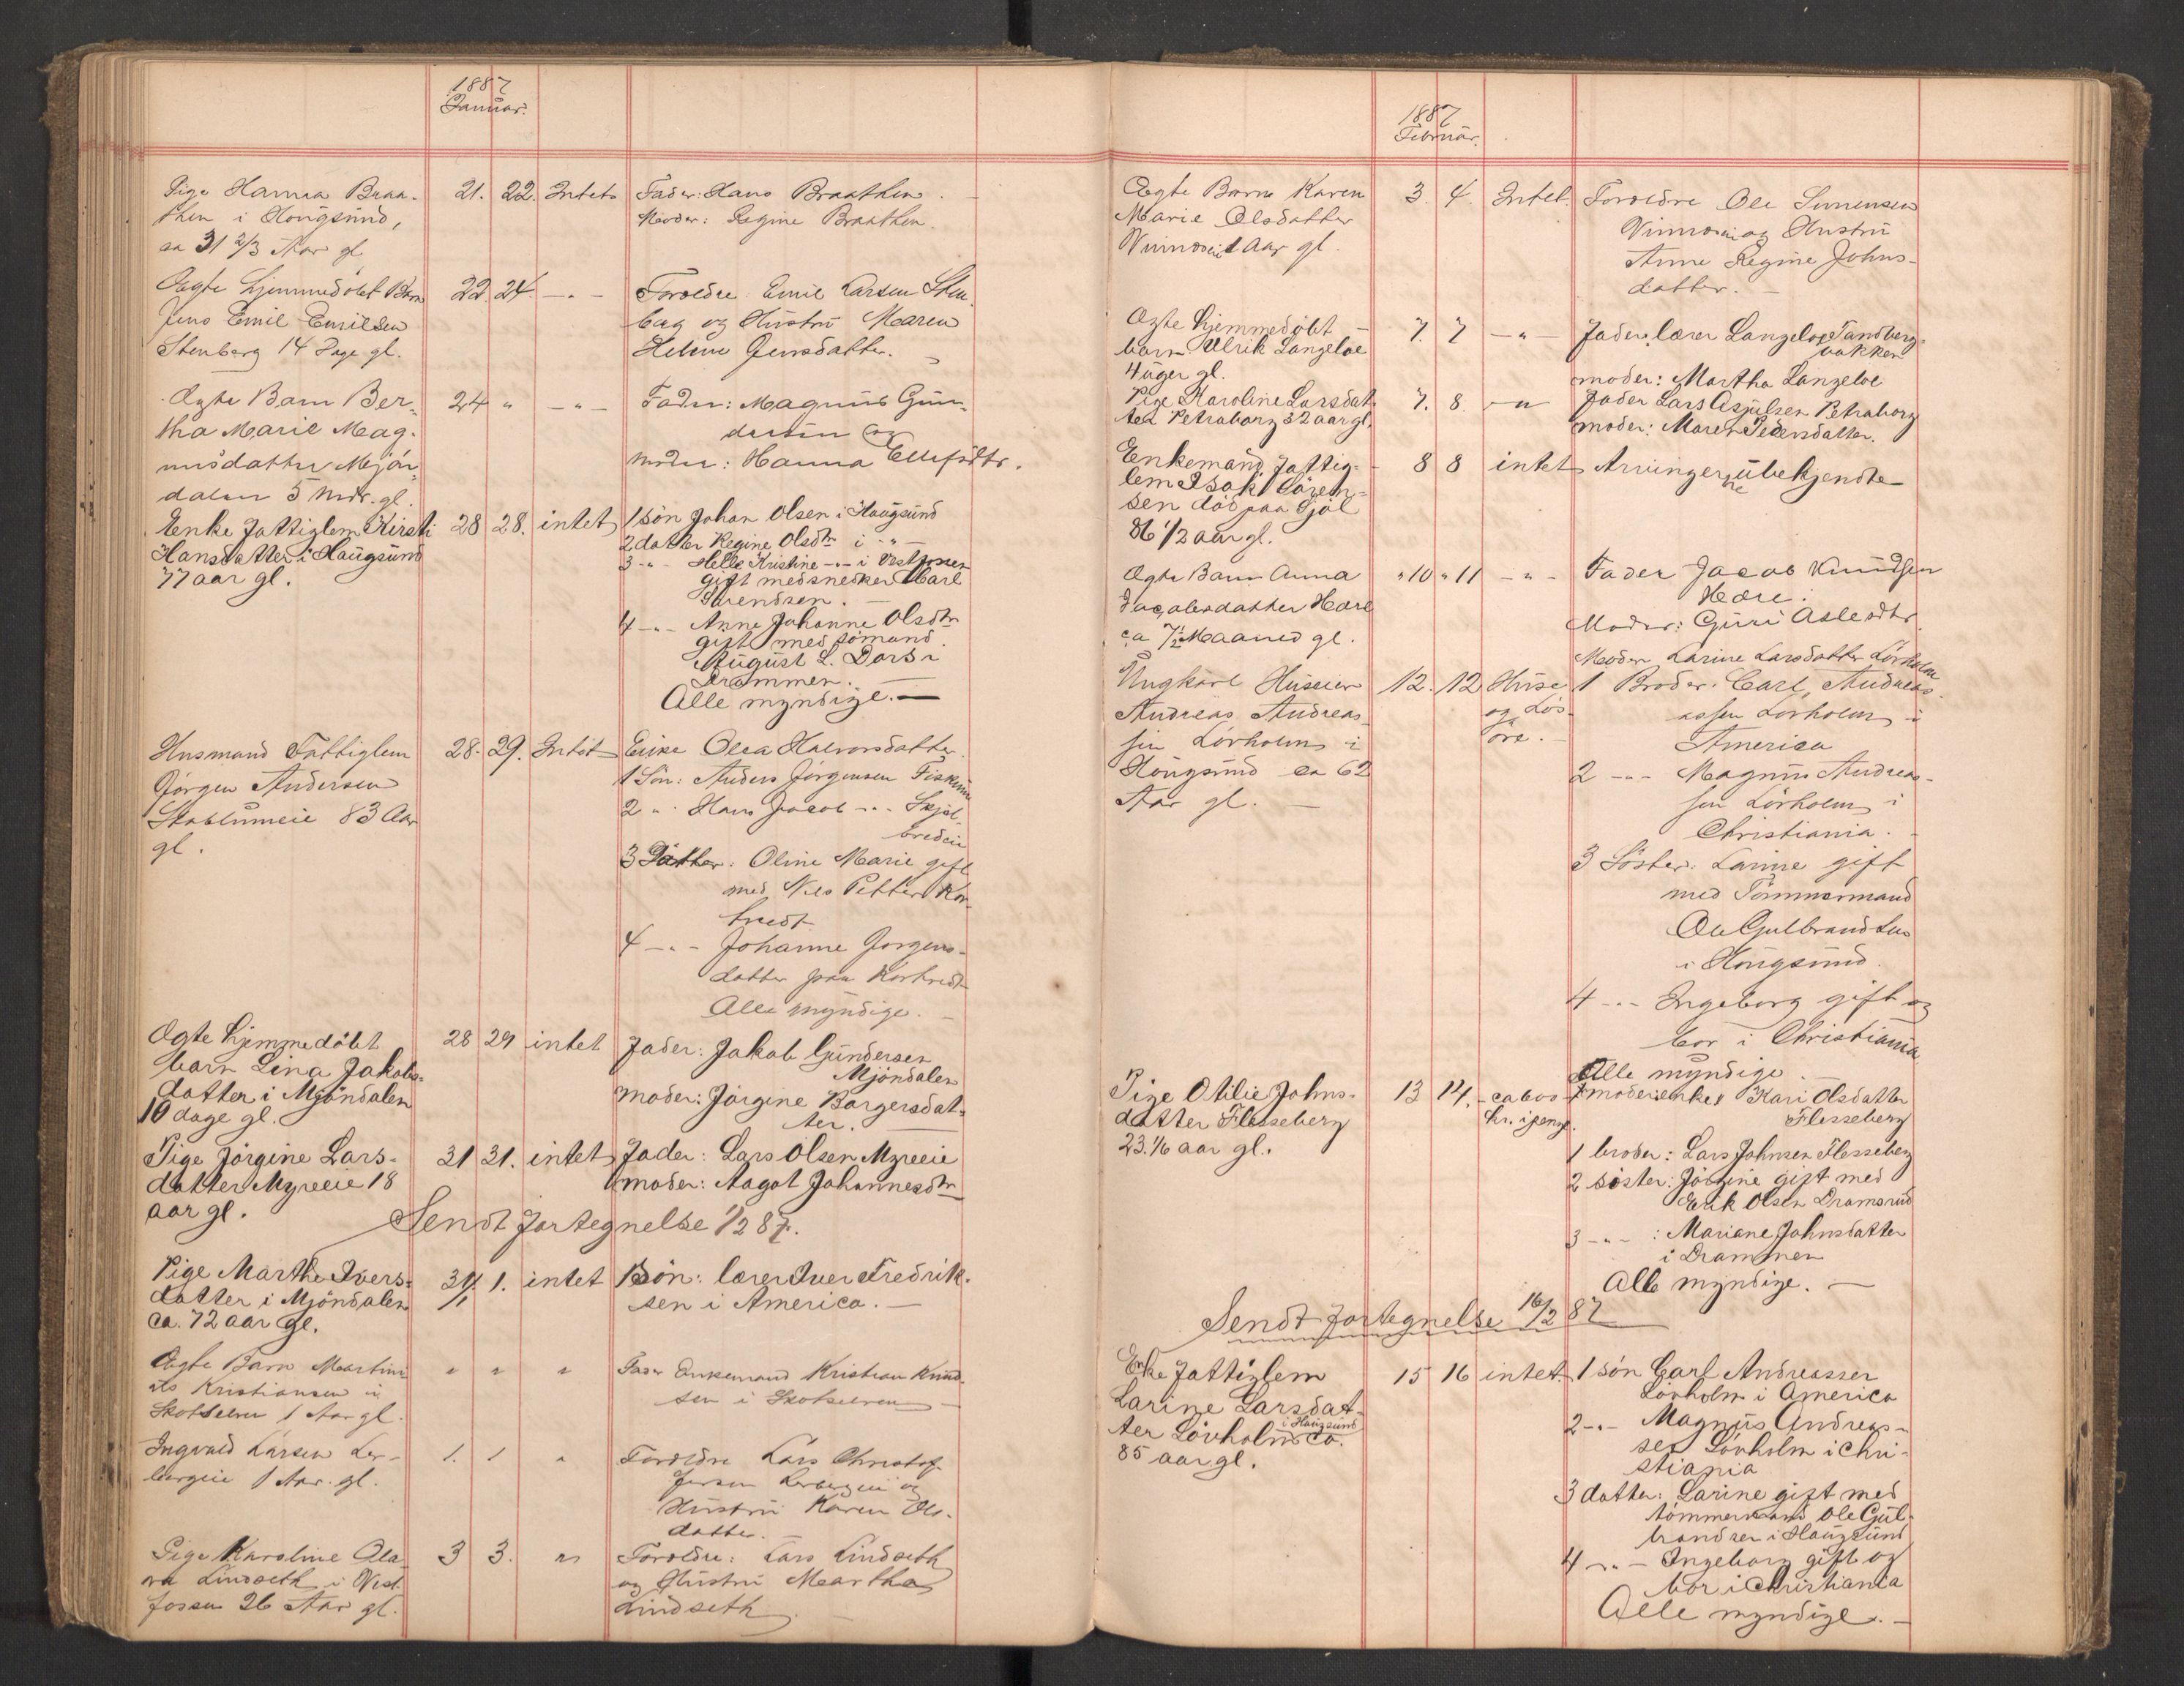 1887
Januar.
Pige Hanna Braa-
then i Hougsund,
ca 31 2/3 Aar gl
21. 22. Intet
Fader: Hans Braathen.
Moder: Regine Braathen.
Ægte hjemmedöbt Barn
Jens Emil Emilsen
Stenberg 14 Dage gl.
22. 24. -"-
Foreldre: Emil Larsen Sten-
berg og Hustru Maren
Helene Jensdatter.
Ægte Barn Ber-
tha Marie Mag-
nusdatter Mjön-
dalen 5 Mdr. gl.
24 " -"-
Fader: Magnus Gun-
dersen og
moder: Hanna Ellefsdtr.
Enke Fattiglem Kirsti
Hansdatter i Haugsund
77 aar gl.
28 28. intet
1 Sön Johan Olsen i Haugsund
2 datter Regine Olsdtr i -"-
3 -"- Helle Kristine -"- i Vestfossen
gift med snedker Carl
Svendsen.
4 -"- Anne Johanne Olsdtr
gift med sömand
August L. Dors i
Drammen.
Alle myndige.-
Husmand Fattiglem
Jörgen Andersen
Stablumeie 83 Aar
gl.
28. 29. Intet
Enke Olea Halvorsdatter.
1 Sön: Anders Jörgensen Fiskum
2 " Hans Jacob -"- Skjöl-
bredeie
3 Datter: Oline Marie gift
med Nils Petter Kor-
tvedt
4 -"- Johanne Jörgens-
datter paa Kortvedt
Alle myndige.
Ægte hjemmedöbt
barn Lina Jakobs-
datter i Mjöndalen
10 dage gl.
28 29 intet
Fader: Jakob Gundersen
Mjöndalen
moder: Jörgine Borgersdat-
ter.
Pige Jörgine Lars-
datter Myreeie 18
aar gl.
31 31. intet
Fader: Lars Olsen Myreeie
moder: Aagot Johannesdtr
Sendt Fortegnelse 1/2 87.
Pige Marthe Ivers-
datter i Mjöndalen
ca. 72 aar gl.
31/1 1. intet
1 Sön: lærer Iver Fredrik-
sen i America.-
Ægte Barn Martini-
us Kristiansen i
Skotselven 1 Aar gl.
" " "
Fader Enkemand Kristian Knud-
sen i Skotselven
Ingvald Larsen Ler-
bergeie 1 Aar. gl.
1. 1 "
Foreldre Lars Christof-
fersen Lerbergeie og
Hustru Karen Ols-
datter.
Pige Karoline Ola-
va Lindseth i Vest-
fossen 26 Aar gl.
3 3. "
Foreldre: Lars Lindseth
og Hustru Martha
Lindseth
1887
Februar.
Ægte Barn Karen
Marie Olsdatter
1 Aar gl.
3. 4. Intet.
Foreldre Ole
og Hustru
Anne Regine Johns-
datter.
Ægte hjemmedöbt
barn Ulrik Langeloe
4 uger gl.
7. 7 -"-
Fader, lærer Langeloe Tandberg-
bakken
moder: Martha Langeloe
Pige Karoline Larsdat-
ter Petraborg 32 aar gl.
7. 8. -"-
Fader Lars Asjulsen Petraborg
moder: Maren Pedersdatter.
Enkemand, Fattig-
lem Isak Sören-
sen död paa Gjöl
86 1/2 aar gl.
8 8 intet
Arvingerne übekjendte
Ægte Barn Anna
Jacobsdatter Hære
ca 7 1/2 Maaned gl.
" 10 " 11 -"-
Fader Jacob Knudsen
Hære.
Moder: Guri Aslesdtr.
Ungkarl Huseier
Andreas Andreas-
sen Lövholm i
Hougsund ca 62
Aar gl.-
12. 12 Huse
og Lös-
öre.-
Moder Larine Larsdatter Lövholm
1 Broder: Carl Andreas-
assen Lövholm i
America
2 -"- Magnus Andreas-
sen Lövholm i
Christiania.
3 Söster: Larine gift
med Tömmermand
Ole Gulbrandsen
i Hougsund.
4 -"- Ingeborg gift og
bor i Christiania
Alle myndige.
Pige Otilie Johns-
datter Flesseberg
23 1/6 aar gl.
13 14. ca 600
kr. i penge.
moder enke Kari Olsdatter
Flesseberg
1 broder: Lars Johnsen Flesseberg
2 söster: Jörgine gift med
Erik Olsen Dramsrud
3 -"- : Mariane Johnsdatter
i Drammen
Alle myndige.-
Sendt fortegnelse 16/2 87
Enke Fattiglem
Larine Larsdat-
ter Lövholm i Haugsund ca.
85 aar gl.
15 16 intet.
1 sön Carl Andreassen
Lövholm i America
2 -"- Magnus Andreas-
sen Lövholm i Chri-
stiania
3 datter: Larine gift med
tömmermand Ole Gul-
brandsen i Haugsund
4 -"- Ingeborg gift og
bor i Christiania
Alle myndige.-